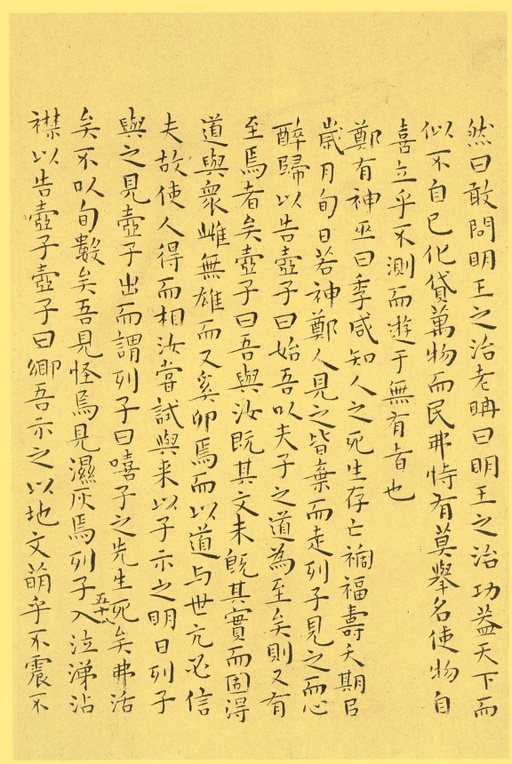 然曰敢問明王之治老聃曰明王之治功蓋天下而
似不自已化貸萬物而民弗恃有莫舉名使物自
喜立乎不測而遊于無有者也
鄭有神巫曰季咸知人之死生存亡禍福壽夭期㠯
歲月旬日若神鄭人見之皆棄而走列子見之而心
醉歸以告壺子曰始吾以夫子之道為至矣則又有
至焉者矣壺子曰吾與汝既其文未既其實而固得
道與眾雌無雄而又奚卵焉而以道与世亢必信
夫故使人得而相汝嘗試與来以子示之明日列子
與之見壺子出而謂列子曰嘻子之先生死矣弗活
五十八
矣不以旬數矣吾見怪焉見濕灰焉列子入泣涕沾
襟以告壺子壺子曰鄉吾示之以地文萌乎不震不